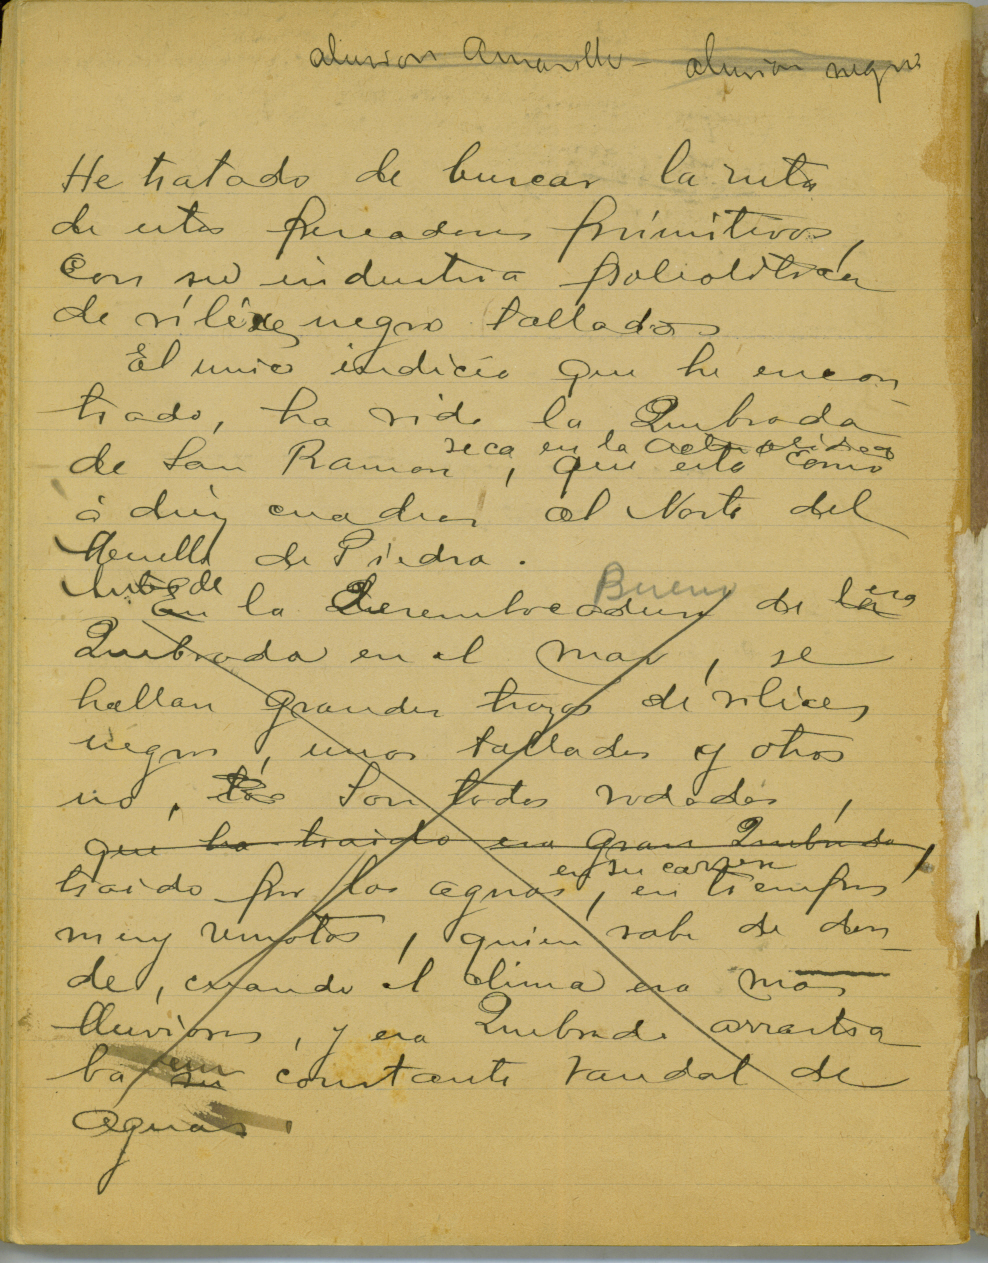 aluvion Amarillo - aluvion negro
He tratado de buscar la ruta
de estos pescadores primitivos,
con su industria paleolitica
de sílice negro tallados
El unico indicio que he encon-
trado, ha sido la Quebrada
seca en la actualidad
de San Ramon, que esta como
á diez cuadras al Norte del
Muelle de Piedra.
Antes de Bueno
En la Desembocadura de la esa
Quebrada en el mar, se
hallan grandes trozos de sílices
negros, unos tallados y otros
no, los Son todos rodados,
que ha traido esa gran Quebrada,
en su carrera
traido por las aguas, en tiempos
muy remotos, quien sabe de don-
de, cuando el clima era mas
lluvioso, y esa Quebrada arrastra
ba su un constante raudal de
aguas